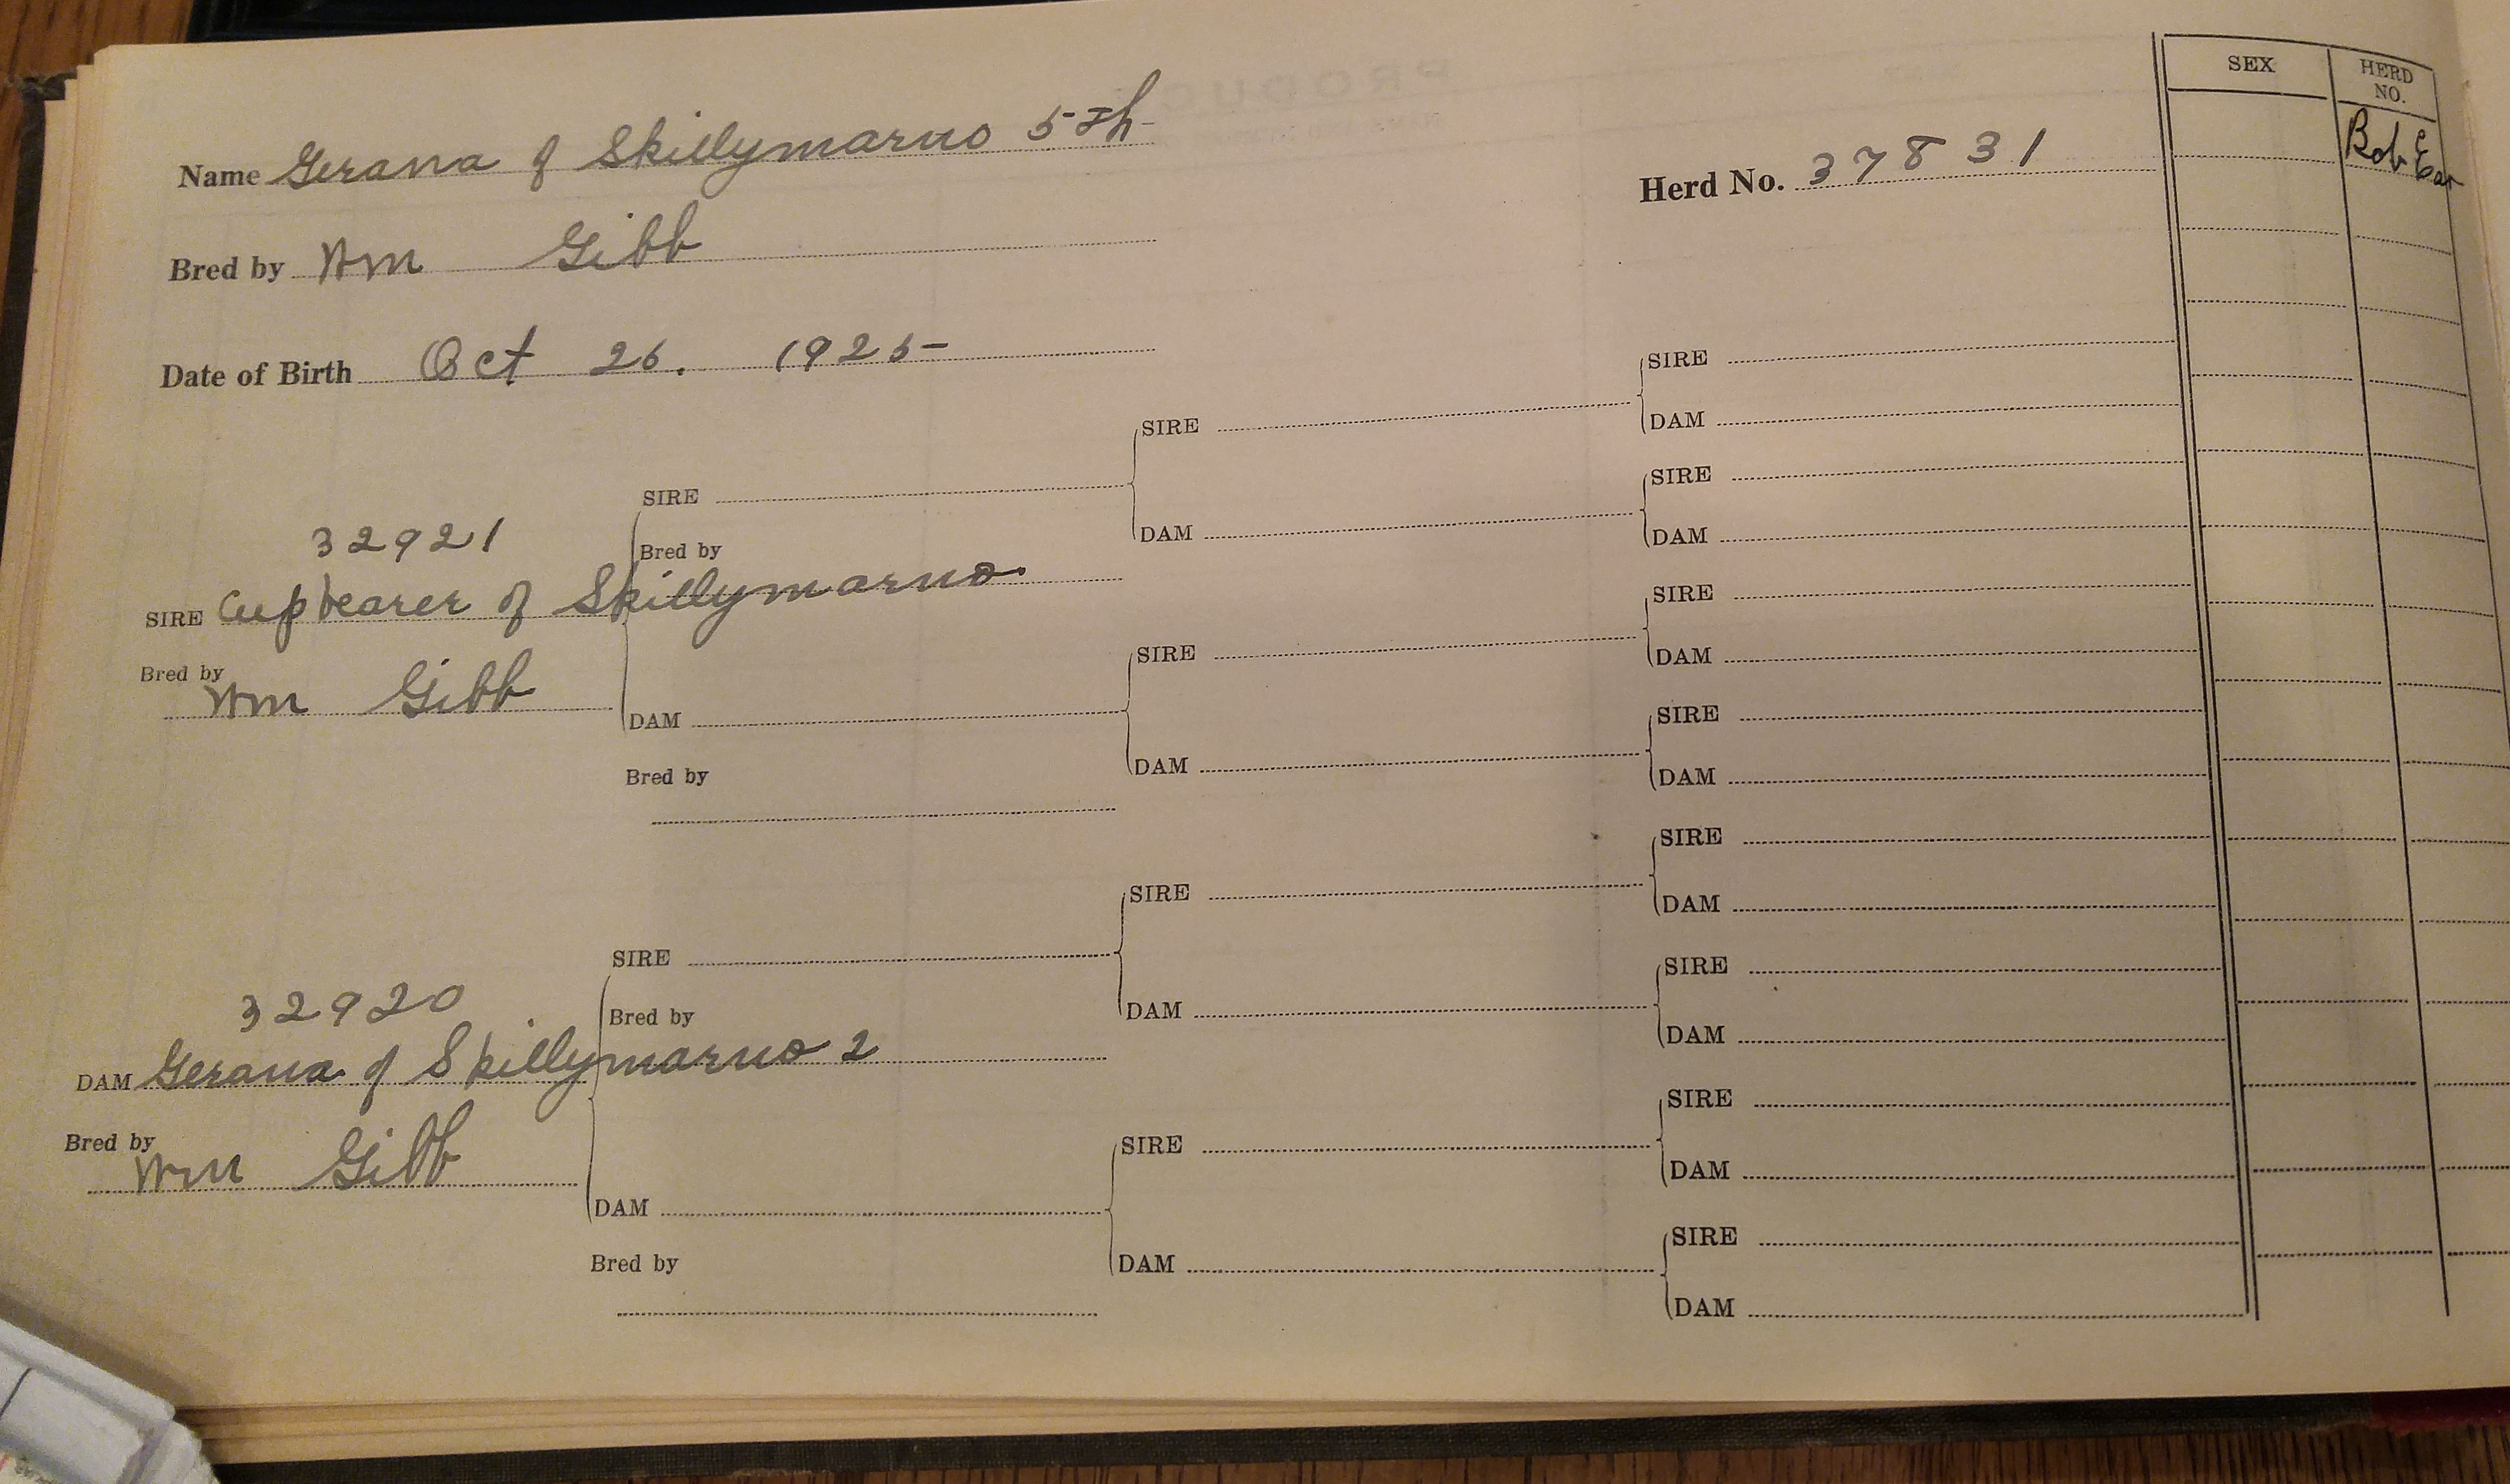 PRODUC
SEX
HERD NO.
Name Gerana of Skillymarno 5th
Herd No. 37831
Bob
Bred by Wm Gibb
Date of Birth Oct 26. 1925
SIRE
DAM
SIRE
SIRE
SIRE
DAM
DAM
32921
Bred by
SIRE Cupbearer of Skillymarno
SIRE
DAM
SIRE
Bred by
Wm Gibb
DAM
SIRE
DAM
DAM
Bred by
SIRE
DAM
SIRE
SIRE
DAM
32920
Bred by
DAM
SIRE
DAM
DAM Gerana of Skillymarno 2
SIRE
DAM
Bred by
Wm Gibb
SIRE
DAM
Bred by
DAM
SIRE
DAM